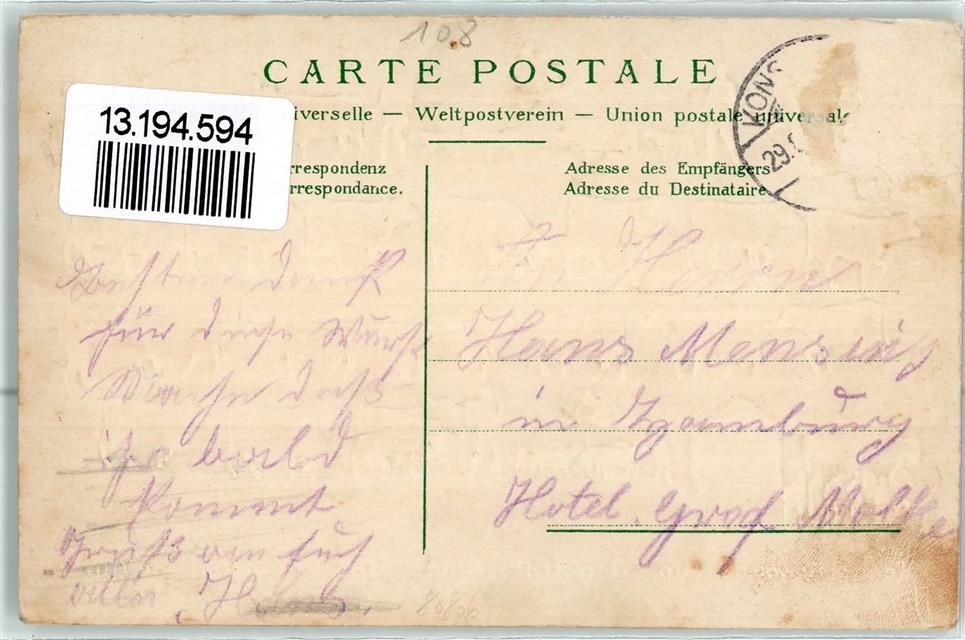 108
CARTE POSTALE
iverselle — Weltpostverein — Union postale universale
13.194.594
rrespondenz
rrespondance.
Adresse des Empfängers
Adresse du Destinataire
KONS
29.
Besten Dank
für diese Wurst
Mache daß
ihr bald
kommt
Gruß an Euch
alle. Hans.
Herrn
Hans Mensing
in Hamburg
Hotel. Graf Moltke